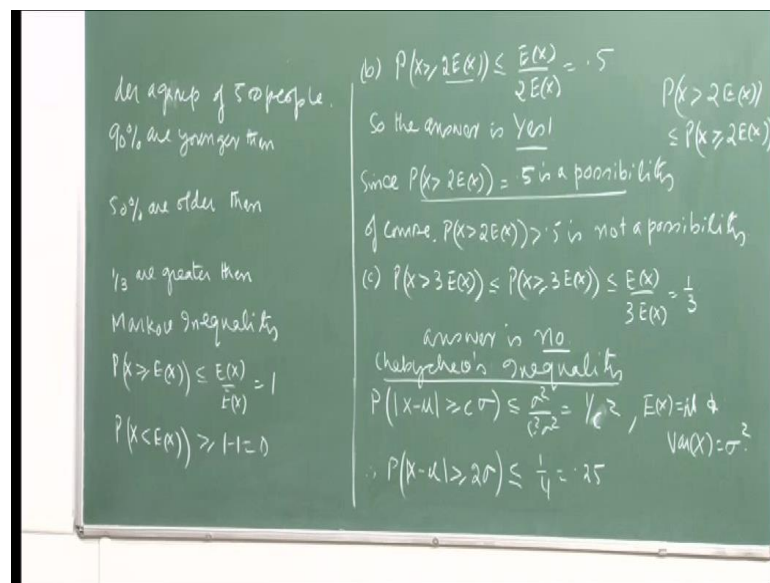 der a group of 500 people.
90% are younger than
50% are older than
1/3 are greater than
Markov Inequality
P(X ≥ E(X)) ≤ E(X)/E(X) = 1
P(X < E(X)) ≥ 1-1=0
(b) P(X ≥ 2E(X)) ≤ E(X)/2E(X) = .5
So the answer is Yes!
Since P(X > 2E(X)) = .5 is a possibility
of course. P(X > 2E(X)) > .5 is not a possibility.
(c) P(X > 3E(X)) ≤ P(X ≥ 3E(X)) ≤ E(X)/3E(X) = 1/3
answer is no.
Chebychev's Inequality
P(|X-μ| ≥ cσ) ≤ σ²/c²σ² = 1/c², E(X)=μ &
Var(X)=σ².
∴ P(X-μ| ≥ 2σ) ≤ 1/4 = .25
P(X > 2E(X))
≤ P(X ≥ 2E(X))